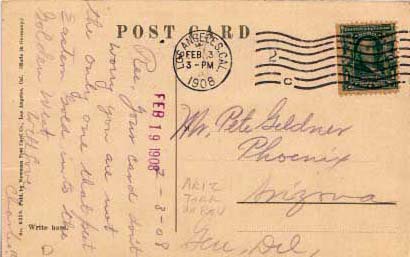 POST CARD
LOS ANGELES, CAL.
FEB 3
3-PM
1908
2
C
FEB 19 1908
Rec. your card don't
worry you are not
the only one that put
Eastern Gold into the
Golden West
With love
Charlie
2-3-08
Write here.
No. 6259. Pub. by Newman Post Card Co., Los Angeles, Cal. (Made in Germany)
Mr. Pete Geldner
Phoenix
Arizona
Gen. Del.
ARIZ
TERR